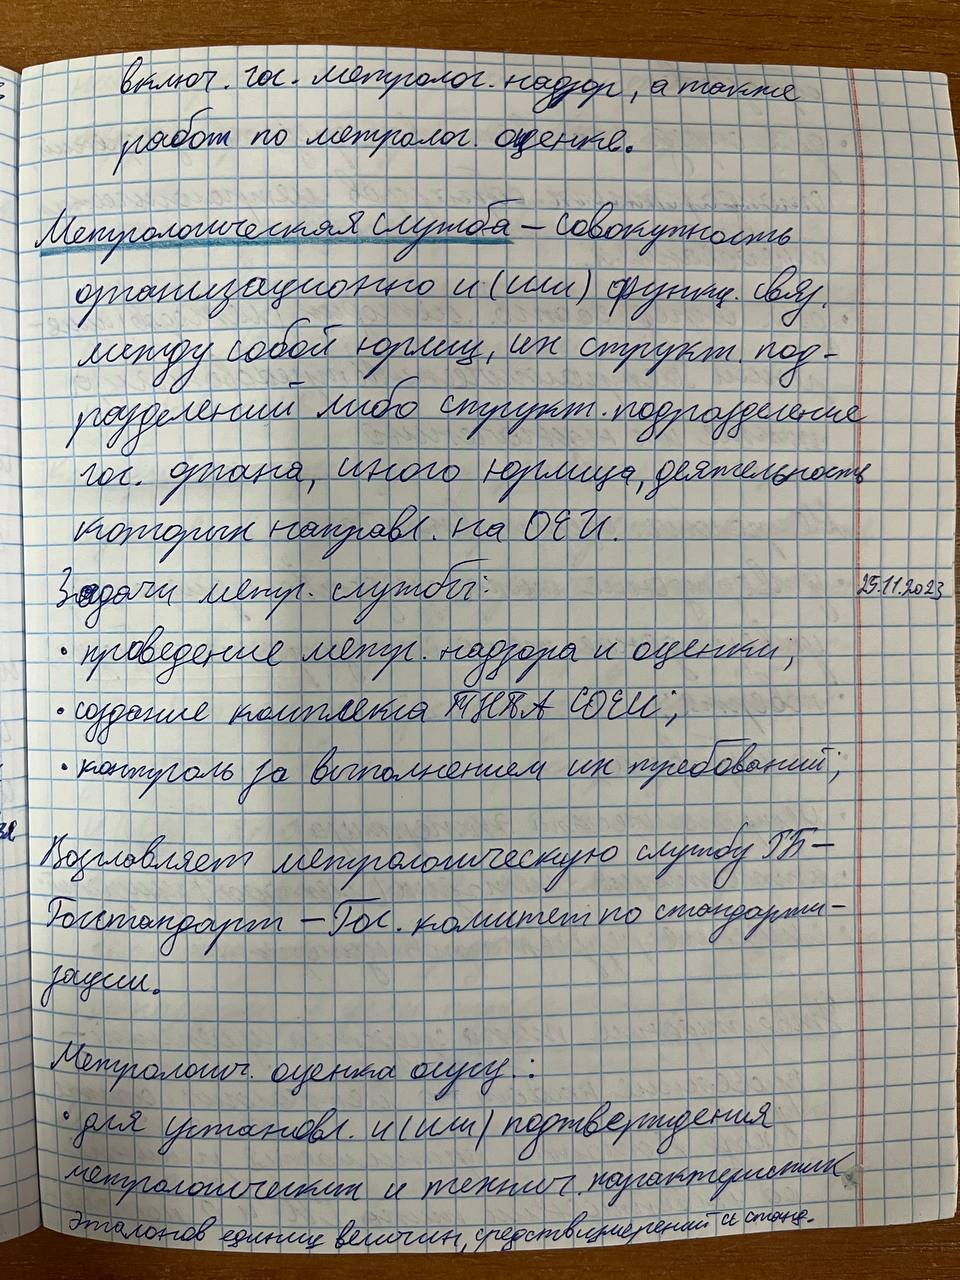 включ. гос. метролог. надзор, а также
работ по метролог. оценке.
Метрологическая служба – совокупность
организационно и (или) функц. связ.
между собой юрлиц, их структ. под-
разделений либо структ. подразделение
гос. органа, иного юрлица, деятельность
которых направл. на ОЕИ.
Задачи метр. службы:
25.11.2023
• проведение метр. надзора и оценки;
• создание комплекта ТНПА СОЕИ;
• контроль за выполнением их требований;
Возглавляет метрологическую службу РБ –
Госстандарт – Гос. комитет по стандарти-
зации.
Метрологич. оценка осущ.:
• для установл. и (или) подтверждения
метрологических и технич. характеристик
эталонов единиц величин, средств измерений и станд.